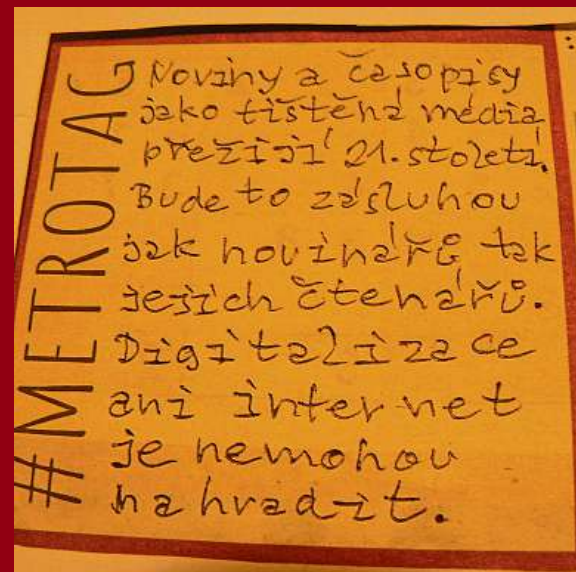 #METROTAG
Noviny a časopisy
jako tištěná média
přežijí 21. století.
Bude to zásluhou
jak novinářů tak
jejich čtenářů.
Digitalizace
ani internet
je nemohou
nahradit.